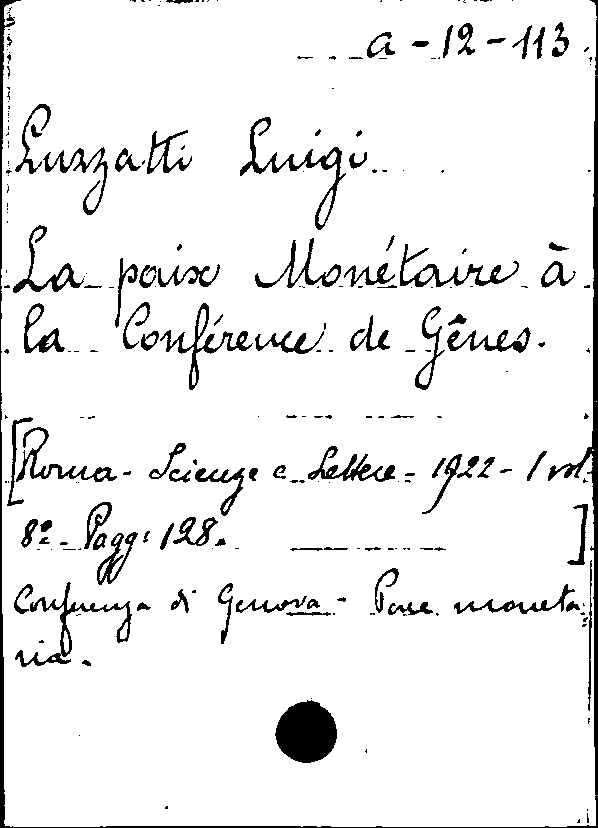 a - 12 - 113
Luzzatti Luigi
La paix Monétaire à
la Conférence de Gênes.
[Roma - Scienze e Lettere - 1922 - 1 vol
8º - Pagg: 128. ]
Conferenza di Genova - Pace moneta
ria.